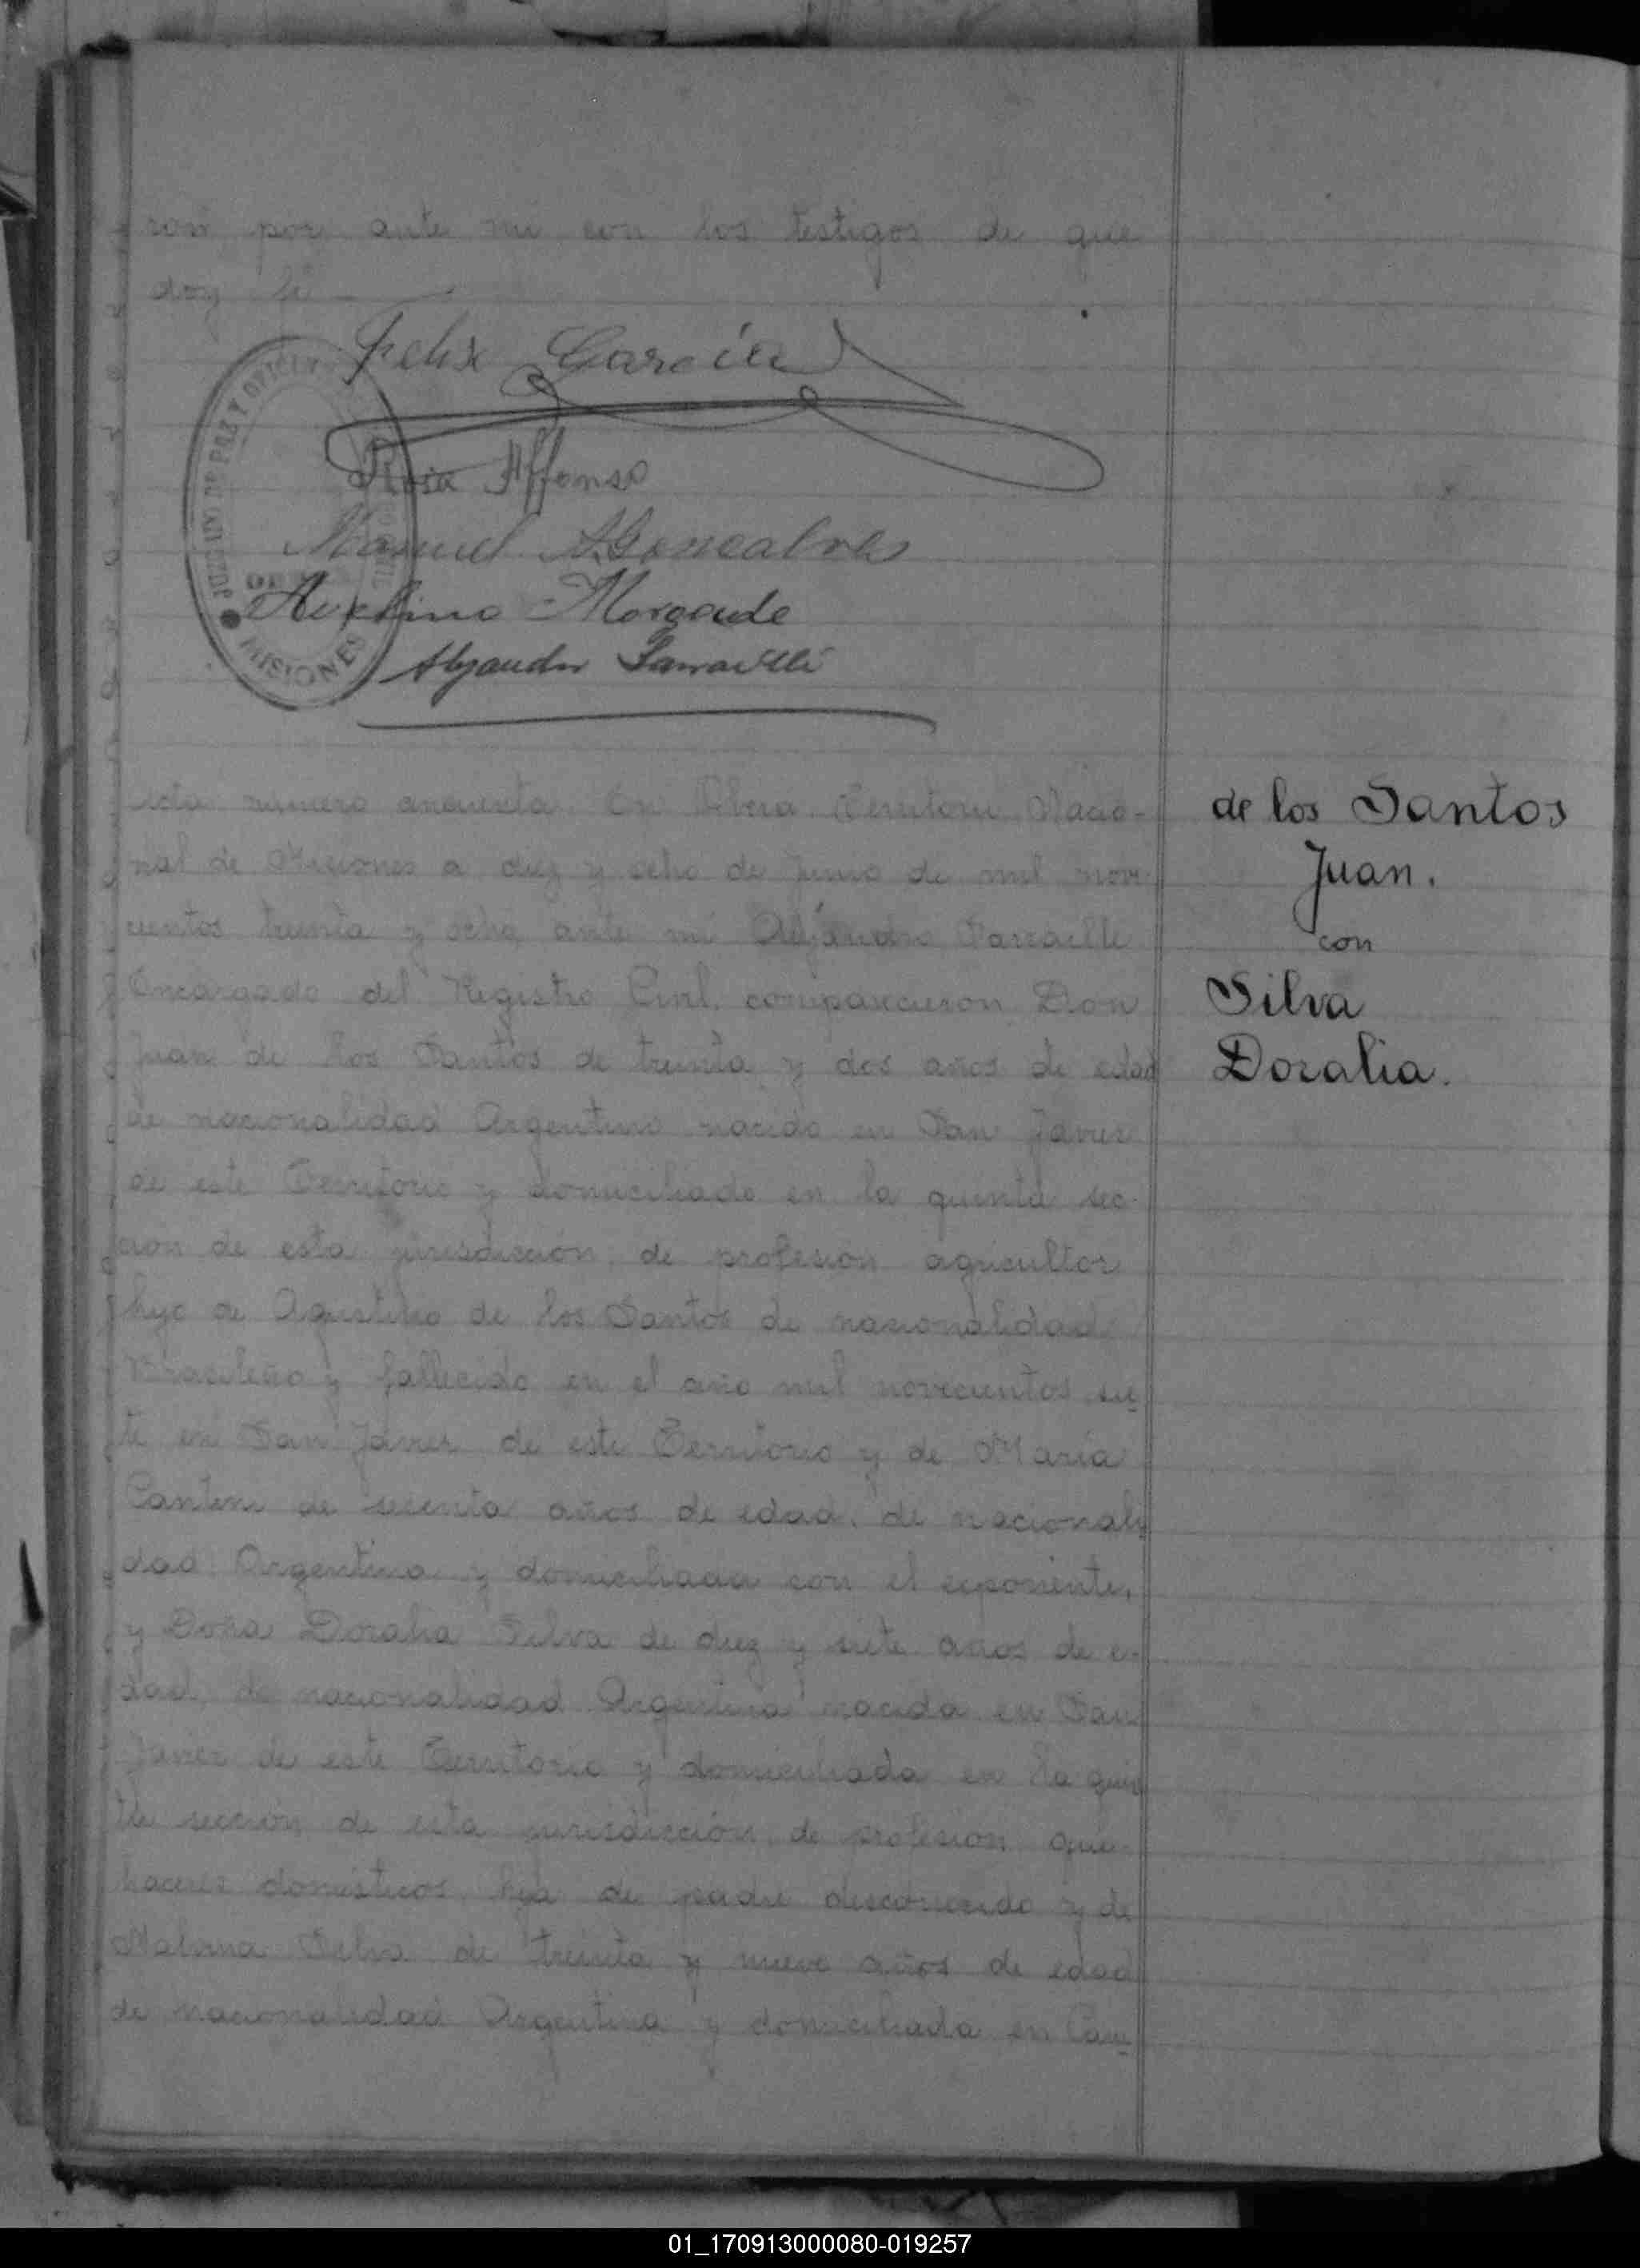 ron por ante mi con los testigos de que
doy fé
Felix Garcia
Rosa Affonso
Manuel A. Goncalves
Avelino Morgade
JUZGADO DE PAZ Y OFICINA
MISIONES
número cincuenta. En Territorio Nacio-
nal de Misiones a diez y ocho de Junio de mil nove
cientos treinta y ocho, ante mi Alejandro
Encargado del Registro Civil, comparecieron Don
Juan de los Santos de treinta y dos años de edad
de nacionalidad Argentino nacido en San Javier
de este Territorio y domiciliado en la quinta sec-
cion de esta jurisdiccion, de profesion agricultor
hijo de de los Santos de nacionalidad
Brasileño y fallecido en el año mil novecientos sie
te en San Javier de este Territorio y de Maria
de años de edad, de nacionali
dad Argentina y domiciliada con el exponente,
y Doña Doralia Silva de diez y siete años de e-
dad, de nacionalidad Argentina nacida en San
Javier de este Territorio y domiciliada en la quin
ta sección de esta jurisdicción, de profesion que-
haceres domésticos, hija de padre desconocido y de
Silva de treinta y nueve años de edad
de nacionalidad Argentina y domiciliada en
de los Santos
Juan.
con
Silva
Doralia.
01_170913000080-019257